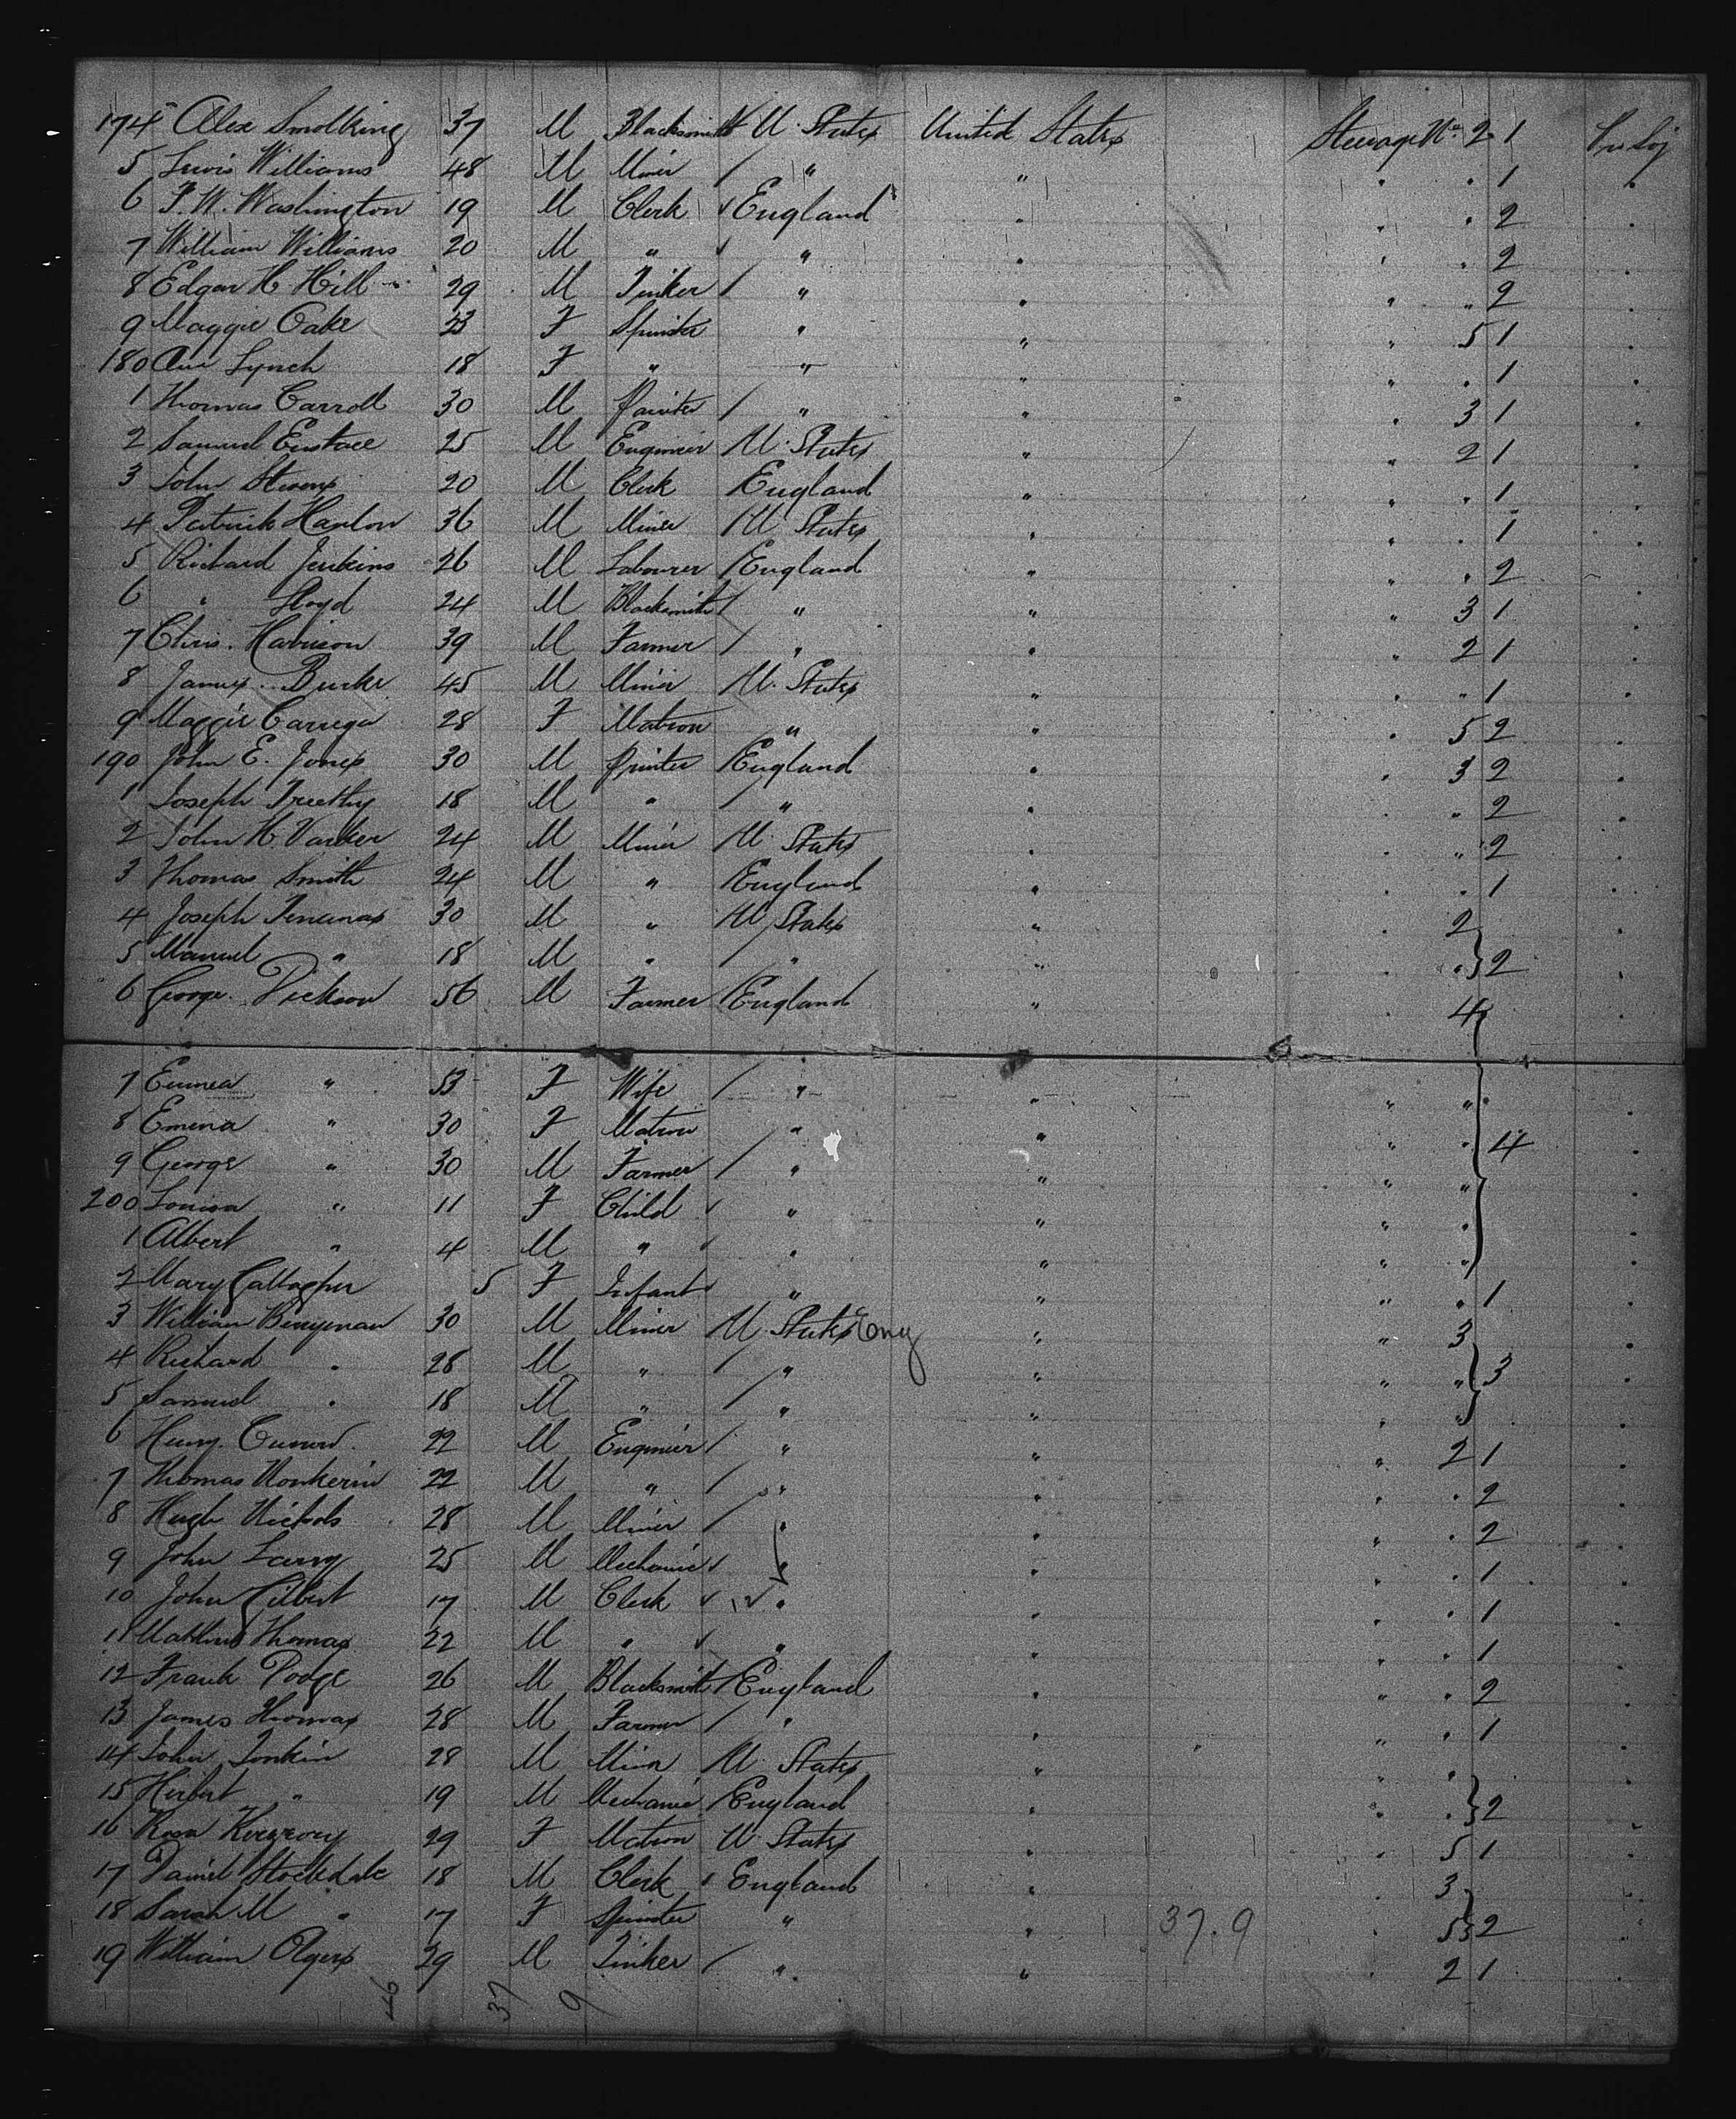 174 Alex Smolking 37 M Blacksmith U. States United States Steerage No 2 1
5 Lewis Williams 48 M Miner / " " " " 1
6 F. W. Washington 19 M Clerk √ England " " " 2
7 William Williams 20 M " √ " " " " 2
8 Edgar H. Hill 29 M Tinker / " " " " 2
9 Maggie Oake 23 F Spinster " " " 5 1
180 Ann Lynch 18 F " " " " " 1
1 Thomas Carroll 30 M Painter / " " " 3 1
2 Samuel Eustace 25 M Engineer U. States " " 2 1
3 John Stevens 20 M Clerk / England " " " 1
4 Patrick Hanlon 36 M Miner / U States " " " 1
5 Richard Jenkins 26 M Labourer / England " " " 2
6 " Lloyd 24 M Blacksmith / " " " 3 1
7 Chris. Harrison 39 M Farmer / " " " 2 1
8 James Burke 45 M Miner / U. States " " " 1
9 Maggie 28 F Matron " " " 5 2
190 John E. Jones 30 M Printer / England " " 3 2
1 Joseph Treethy 18 M " / " " " " 2
2 John H. Varker 24 M Miner / U. States " " " 2
3 Thomas Smith 24 M " / England " " " 1
4 Joseph 30 M " / U States " " 2
5 Manuel " 18 M " / " " " " } 2
6 George Dickson 56 M Farmer / England " " 4
7 Emma " 53 F Wife / " " " "
8 Emma " 30 F Matron " " " " 4
9 George " 30 M Farmer / " " " "
200 Louisa " 11 F Child √ " " " "
1 Albert " 4 M " √ " " " "
2 Mary Gallagher 5 F Infant " " " " 1
3 William Berryman 30 M Miner U. States Eng " " 3
4 Richard " 28 M " / " " " " } 3
5 Samuel " 18 M " / " " " "
6 Henry 22 M Engineer / " " " 2 1
7 Thomas 22 M " / " " " " 2
8 Hugh Nichols 28 M Miner / " " " " 2
9 John Larry 25 M Mechanic √ " " " " 1
10 John Gilbert 17 M Clerk √ √ " " " " 1
11 Matthew Thomas 22 M " √ " " " " 1
12 Frank Podge 26 M Blacksmith / England " " " 2
13 James Thomas 28 M Farmer / " " " " 1
14 John Tonkin 28 M Miner U. States " " "
15 Herbert " 19 M Mechanic / England " " " } 2
16 Rosa 29 F Matron U. States " " 5 1
17 Daniel Stockdale 18 M Clerk England " " 3
18 Sarah M " 17 F Spinster " " 37.9 5 } 2
19 William Olgers 29 M Tinker / " " " 2 1
46 37 9